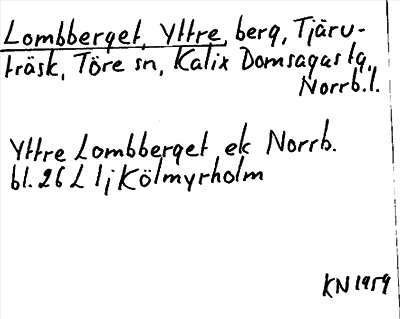 Lombberget, Yttre, berg, Tjäru-
träsk, Töre sn, Kalix Domsagas tg,
Norrb.l.
Yttre Lombberget ek Norrb.
bl. 26 L 1j Kölmyrholm
KN 1959